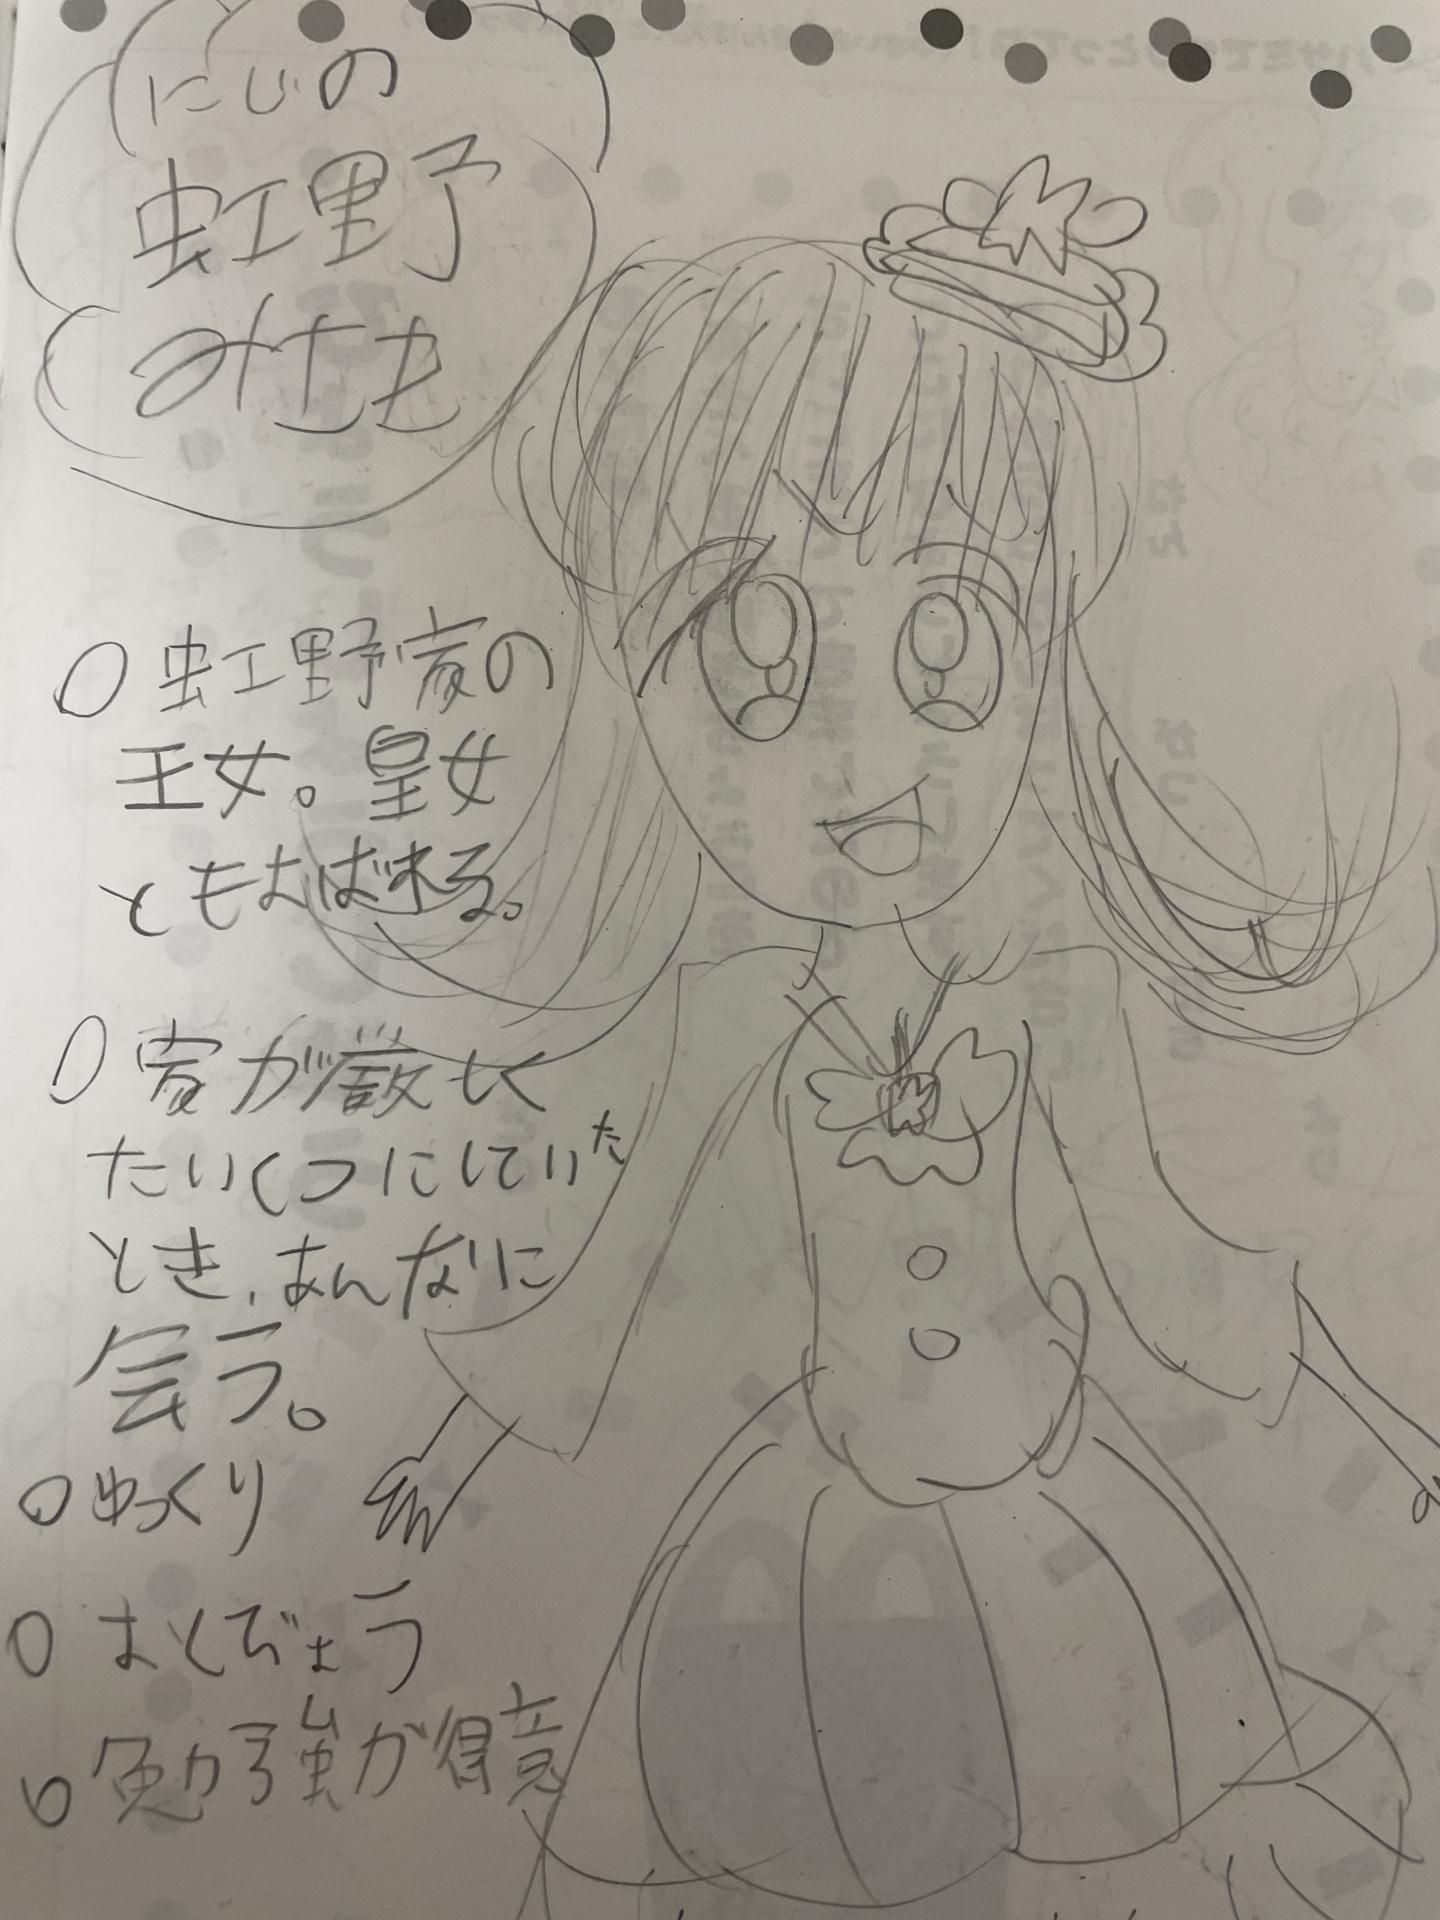 にじの
虹野
みなも
○虹野家の
王女。皇女
ともよばれる。
○家が厳しく
たいくつにしていた
とき、あんなに
会う。
○ゆっくり
○はくじょう
○勉強が得意